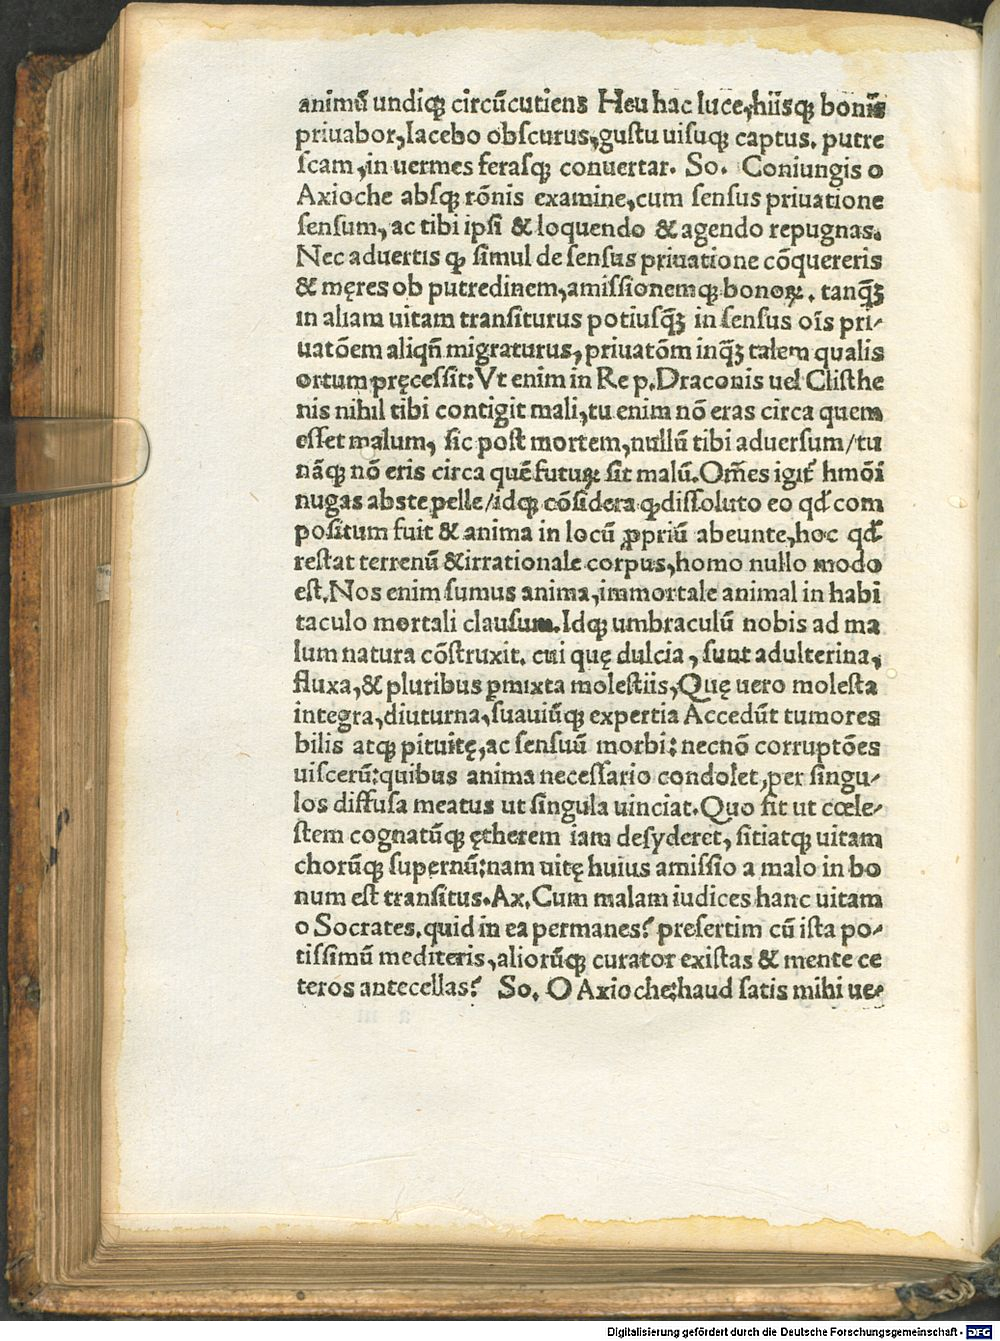 animū undiqꝫ circūcutiens Heu hac luce, hiisqꝫ bonis
priuabor, Iacebo obscurus, gustu uisuqꝫ captus. putre
scam, in uermes ferasqꝫ conuertar. So. Coniungis o
Axioche absqꝫ rōnis examine, cum sensus priuatione
sensum, ac tibi ipsi & loquendo & agendo repugnas.
Nec aduertis ꝙ simul de sensus priuatione cōquereris
& męres ob putredinem, amissionemqꝫ bonoꝝ. tanq̄ꝫ
in aliam uitam transiturus potiusq̄ꝫ in sensus oīs pri⸗
uatōem aliqn̄ migraturus, priuatōm inq̄ꝫ talem qualis
ortum pręcessit: Vt enim in Re p. Draconis uel Clisthe
nis nihil tibi contigit mali, tu enim nō eras circa quem
esset malum, sic post mortem, nullū tibi aduersum/tu
nāqꝫ nō eris circa quē futuꝝ sit malū. Om̄es igit᷑ hmōi
nugas abste pelle/idqꝫ cōsidera ꝙ dissoluto eo qđ com
positum fuit & anima in locū ꝓpriū abeunte, hoc qđ
restat terrenū & irrationale corpus, homo nullo modo
est. Nos enim sumus anima, immortale animal in habi
taculo mortali clausum. Idqꝫ umbraculū nobis ad ma
lum natura cōstruxit. cui quę dulcia, sunt adulterina,
fluxa, & pluribus ꝑmixta molestiis, Quę uero molesta
integra, diuturna, suauiūqꝫ expertia Accedūt tumores
bilis atqꝫ pituitę, ac sensuū morbi: necnō corruptōes
uiscerū: quibus anima necessario condolet, per singu⸗
los diffusa meatus ut singula uinciat. Quo fit ut cœle⸗
stem cognatūqꝫ ętherem iam desyderet, sitiatqꝫ uitam
chorūqꝫ supernū: nam uitę huius amissio a malo in bo
num est transitus. Ax. Cum malam iudices hanc uitam
o Socrates. quid in ea permanes? presertim cū ista po⸗
tissimū mediteris, aliorūqꝫ curator existas & mente ce
teros antecellas? So. O Axioche: haud satis mihi ue⸗
Digitalisierung gefördert durch die Deutsche Forschungsgemeinschaft - DFG